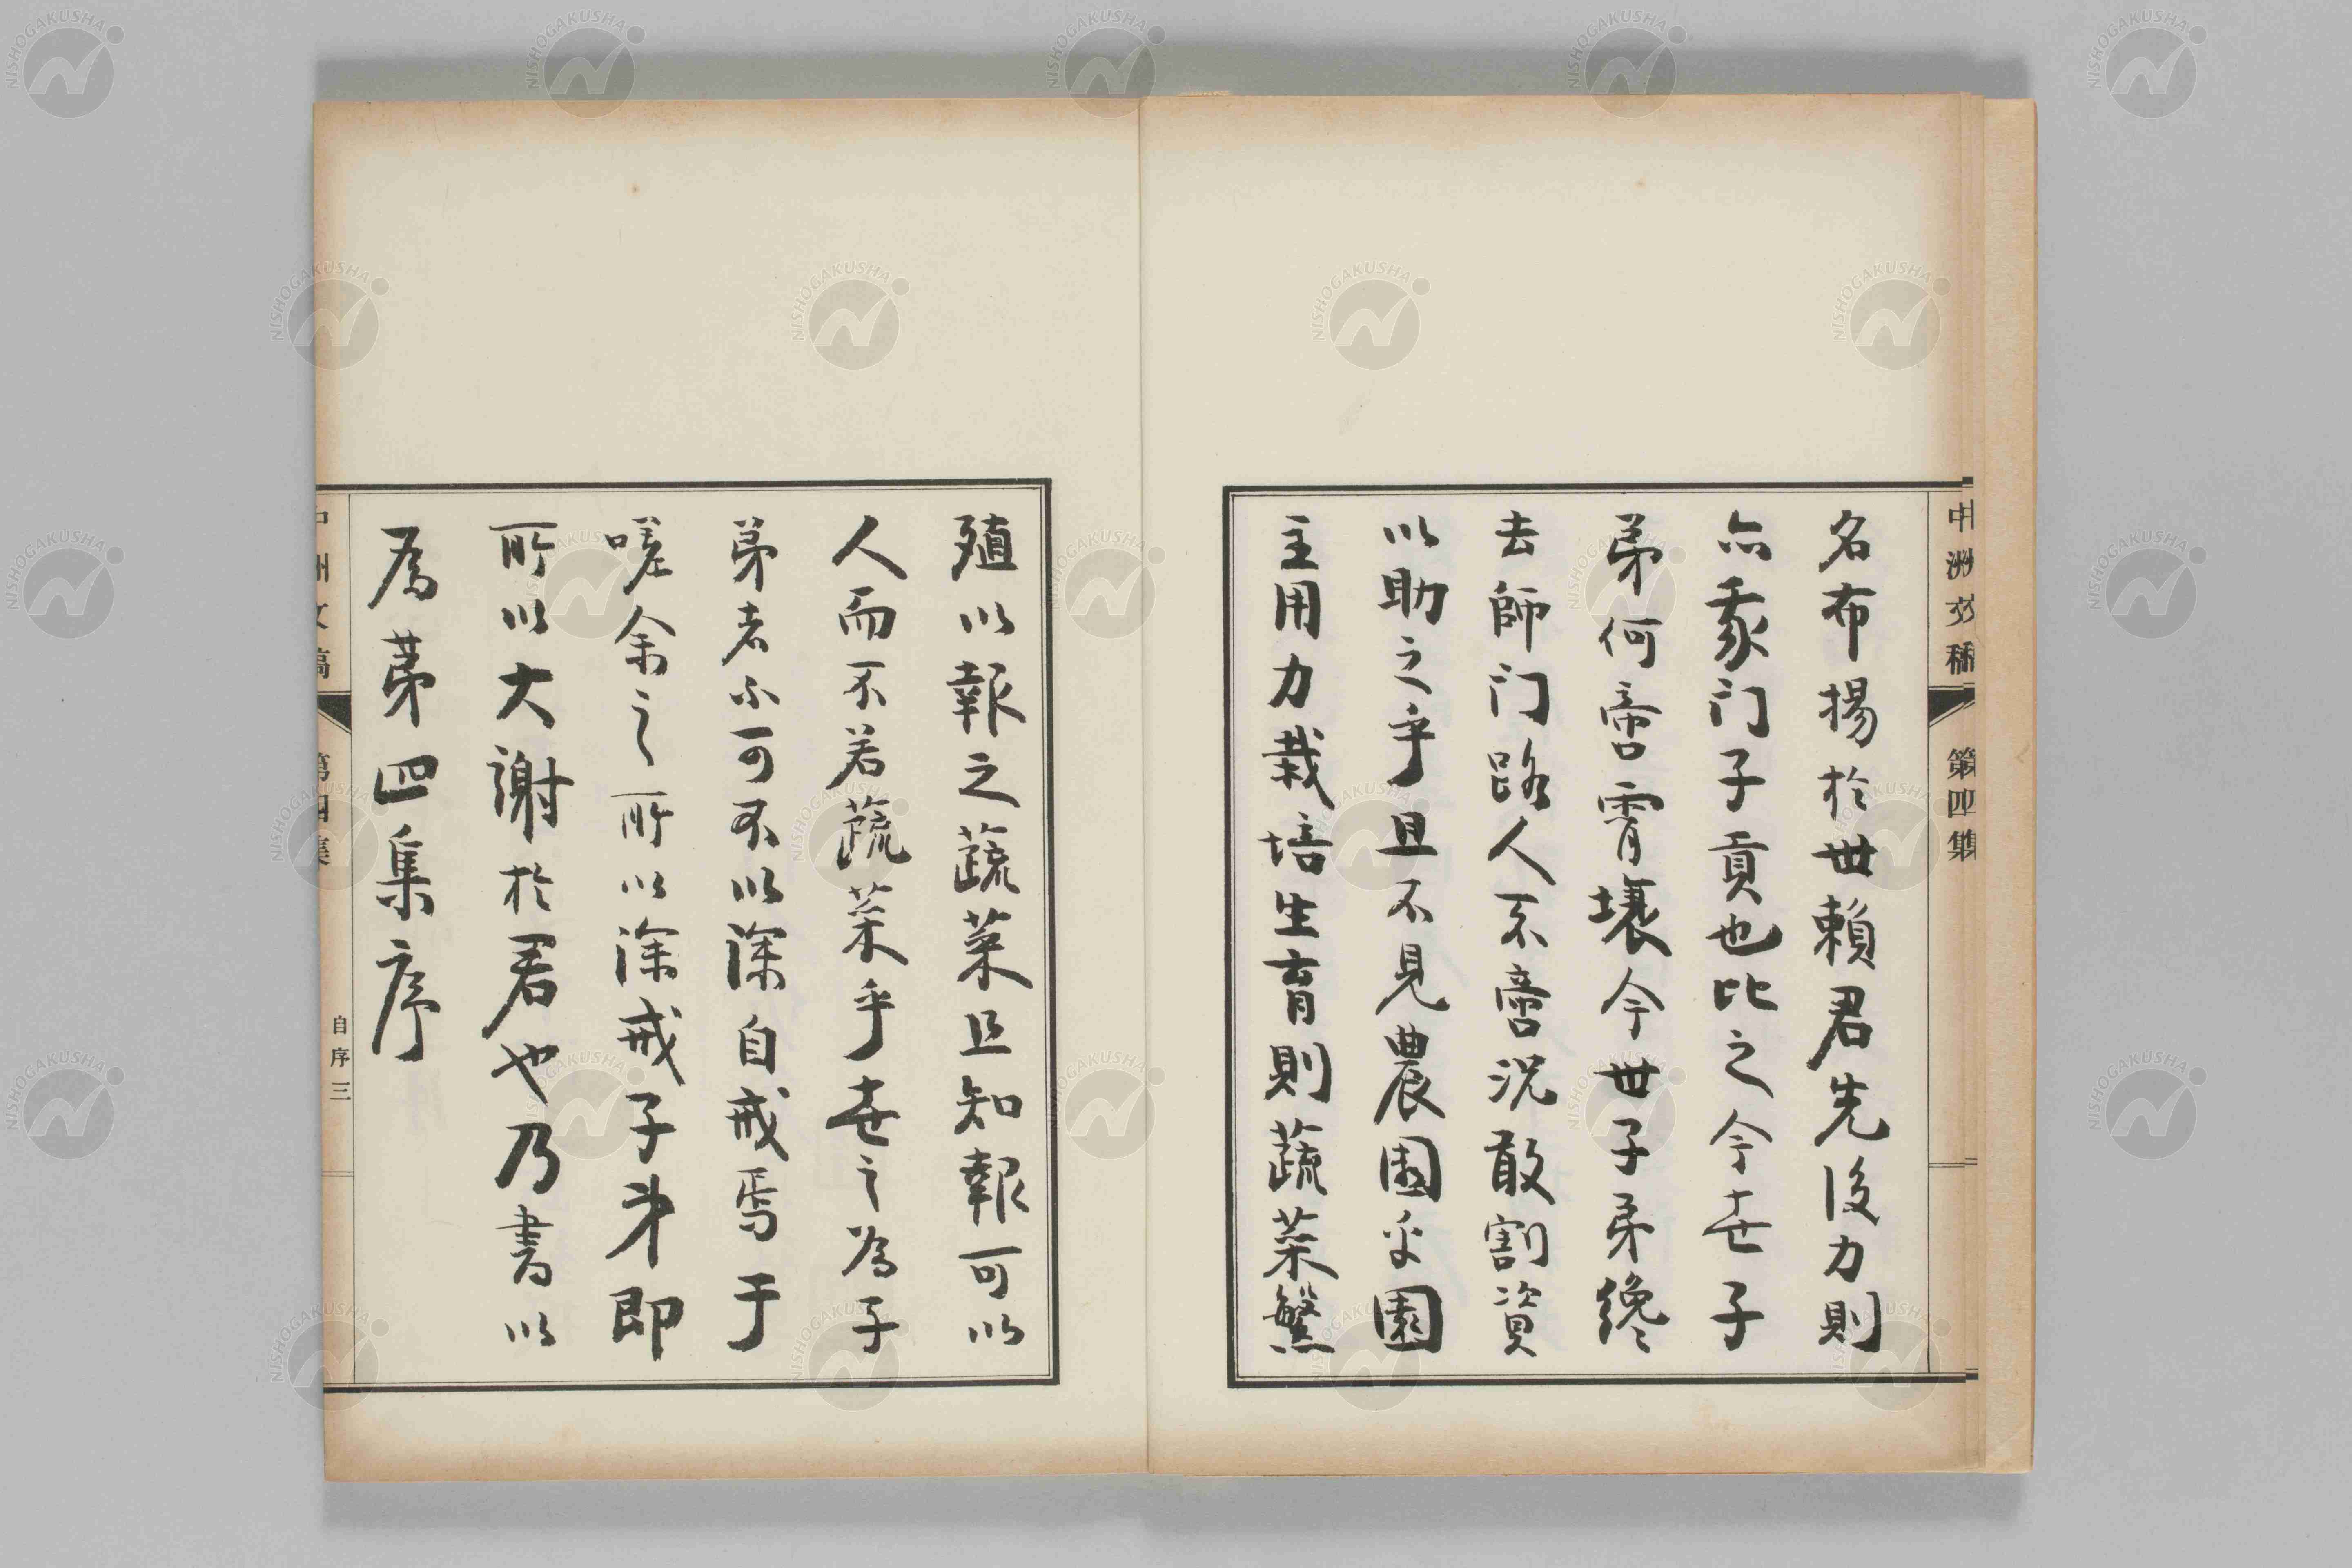 中洲文稿 第四集
名布揚於世賴君先後力則
亦我门子貢也比之今世子
弟何啻霄壤今世子弟纔
去師门路人不啻況敢割資
以助之乎且不見農圃乎園
主用力栽培生育則蔬菜繁
殖以報之蔬菜且知報可以
人而不若蔬菜乎世之為子
弟者不可不以深自戒焉于
嗟余之所以深戒子弟即
所以大謝於君也乃書以
為第四集序
中洲文稿 第四集 自序三
NISHOGAKUSHA